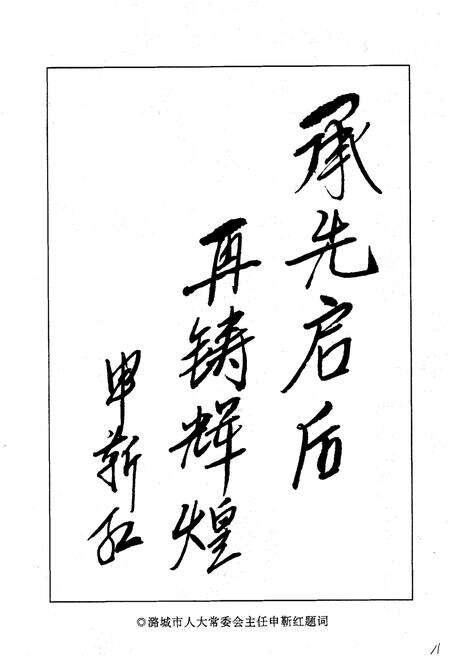 承先启后
再铸辉煌
申靳红
◎潞城市人大常委会主任申靳红题词
11